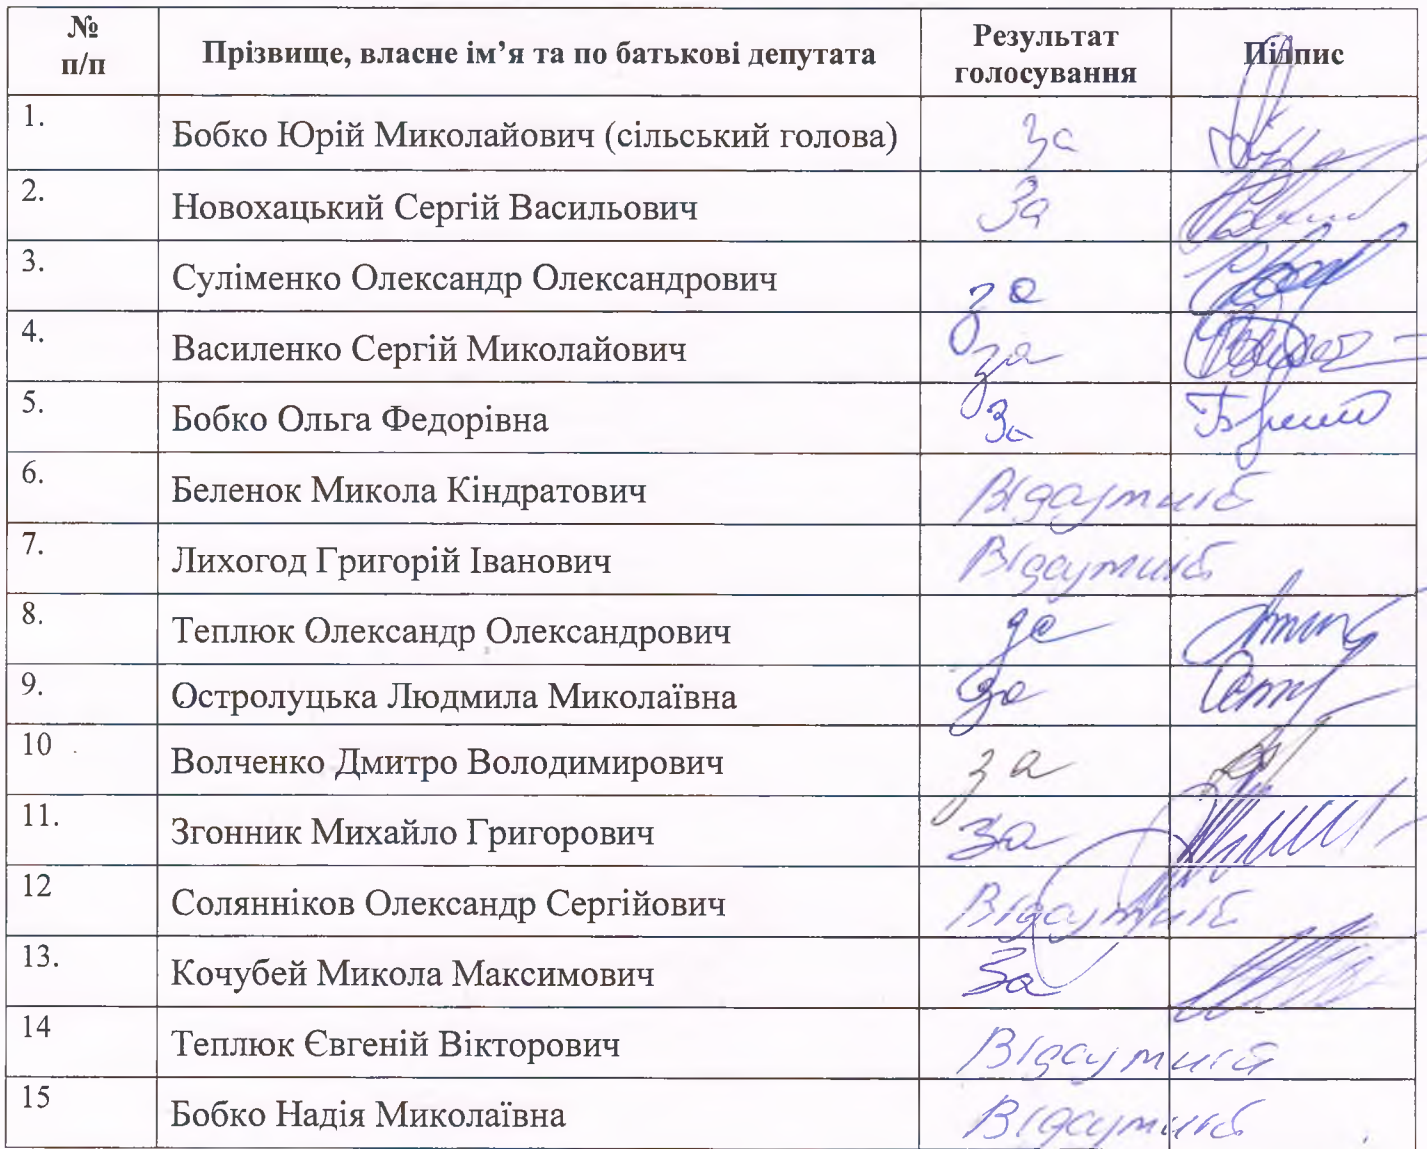 № п/п Прізвище, власне ім’я та по батькові депутата Результат голосування Підпис
1. Бобко Юрій Миколайович (сільський голова) за
2. Новохацький Сергій Васильович За
3. Суліменко Олександр Олександрович за
4. Василенко Сергій Миколайович за
5. Бобко Ольга Федорівна За
6. Беленок Микола Кіндратович Відсутній
7. Лихогод Григорій Іванович Відсутній
8. Теплюк Олександр Олександрович за
9. Остролуцька Людмила Миколаївна за
10 Волченко Дмитро Володимирович за
11. Згонник Михайло Григорович За
12 Солянніков Олександр Сергійович Відсутній
13. Кочубей Микола Максимович За
14 Теплюк Євгеній Вікторович Відсутній
15 Бобко Надія Миколаївна Відсутній